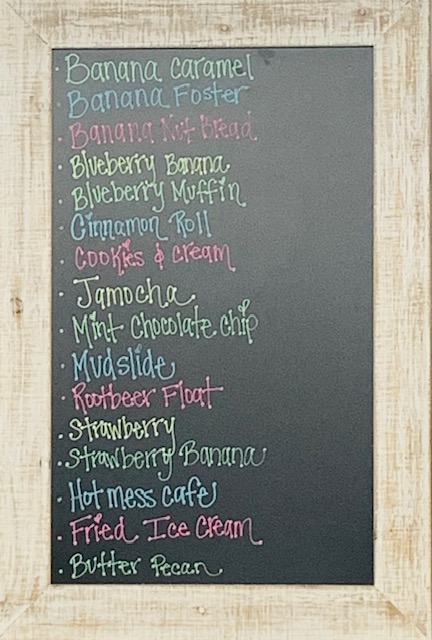 · Banana Caramel
· Banana Foster
· Banana Nut Bread
· Blueberry Banana
· Blueberry Muffin
· Cinnamon Roll
· Cookies & Cream
· Jamocha
· Mint Chocolate Chip
· Mudslide
· Rootbeer Float
· Strawberry
· Strawberry Banana
· Hot mess cafe
· Fried Ice Cream
· Butter Pecan